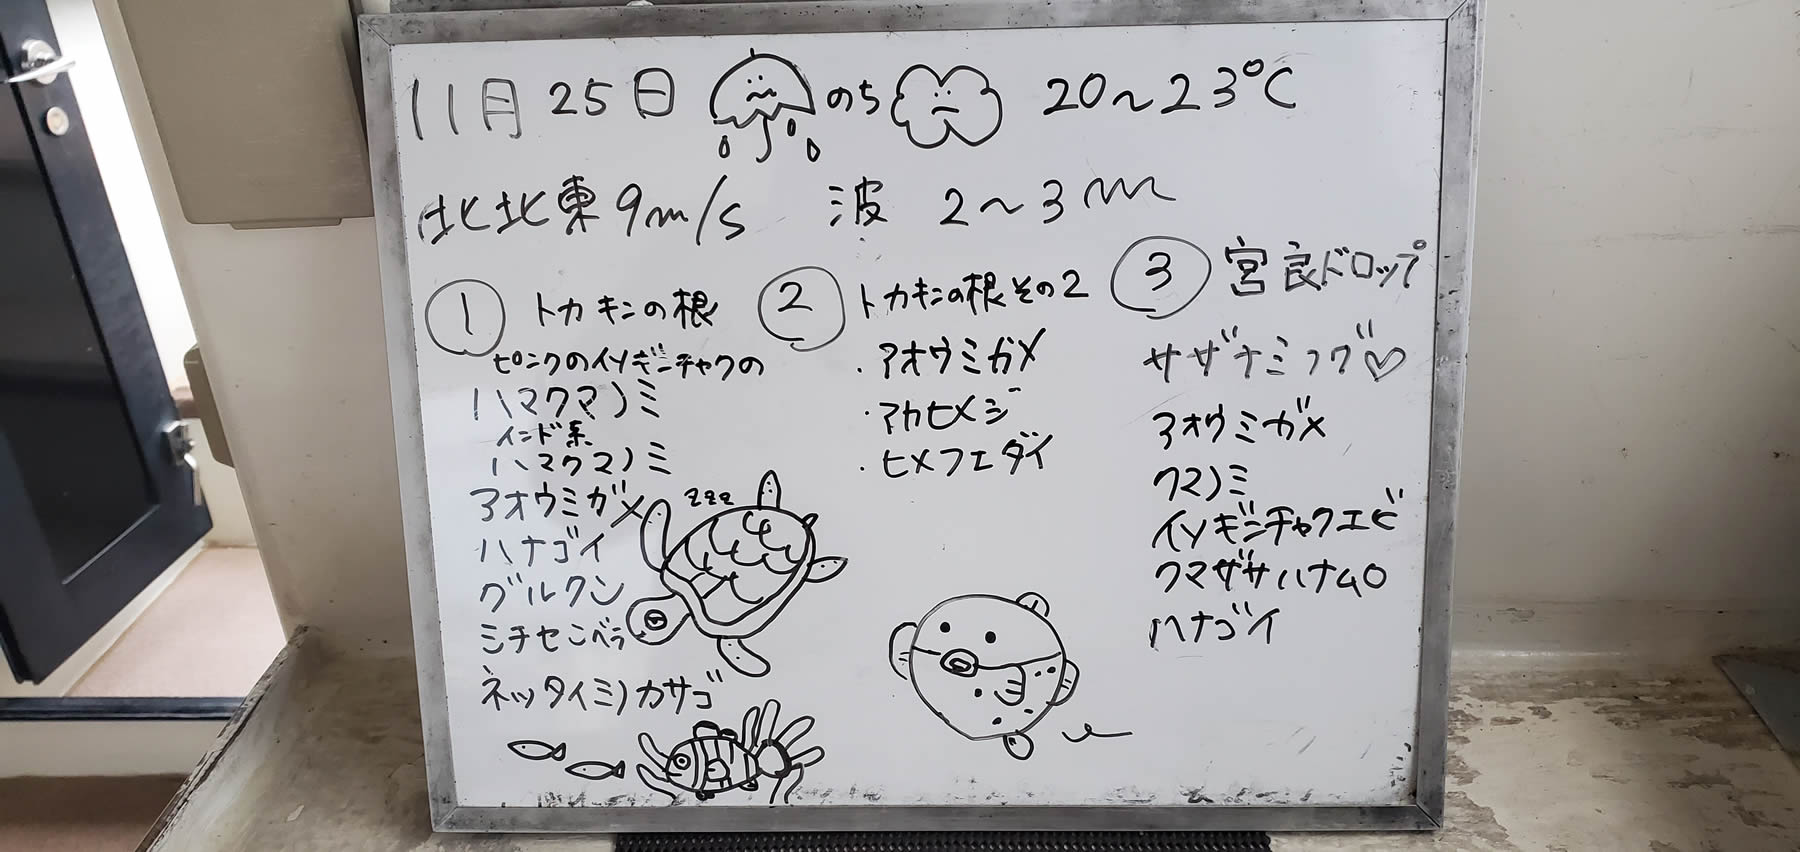 11月 25日 のち 20〜23℃
北北東9m/s 波 2〜3m
① トカキンの根
ピンクのイソギンチャクの
ハマクマノミ
インド系
ハマクマノミ
アオウミガメ
ハナゴイ
グルクン
ミチセンベラ
ネッタイミノカサゴ
zzz
② トカキンの根その2
・アオウミガメ
・アカヒメジ
・ヒメフエダイ
③ 宮良ドロップ
サザナミフグ♡
アオウミガメ
クマノミ
イソギンチャクエビ
クマザサハナムロ
ハナゴイ